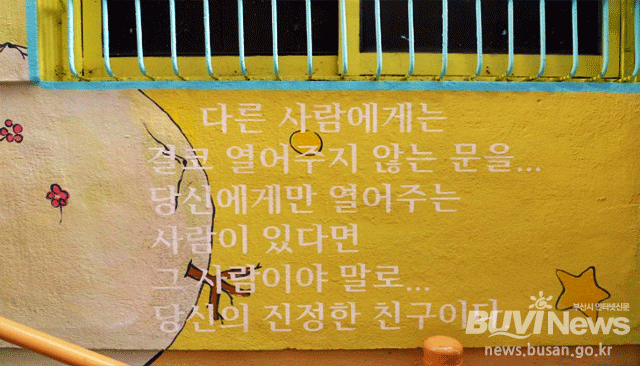 다른 사람에게는
결코 열어주지 않는 문을...
당신에게만 열어주는
사람이 있다면
그 사람이야 말로...
당신의 진정한 친구이다
부산시 인터넷신문
BUVI News
news.busan.go.kr